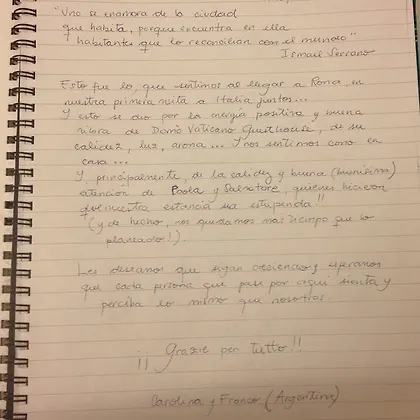 "Uno se enamora de la ciudad
que habita, porque encuentra en ella
habitantes que lo reconcilian con el mundo"
Ismael Serrano
Esto fue lo que sentimos al llegar a Roma, en
nuestra primera visita a Italia juntos...
Y esto se dio por la energía positiva y buena
vibra de Domo Vaticano Guesthouse, de su
calidez, luz, aroma... Y nos sentimos como en
casa...
Y principalmente, de la calidez y buena (buenísima)
atención de Paola y Salvatore, quienes hicieron
que nuestra estancia sea estupenda!!
(y de hecho, nos quedamos más tiempo que lo
planeado!).
Les deseamos que sigan creciendo y esperamos
que cada persona que pase por aquí sienta y
perciba lo mismo que nosotros.
¡¡ Grazie per tutto!!
Carolina y Franco (Argentina)